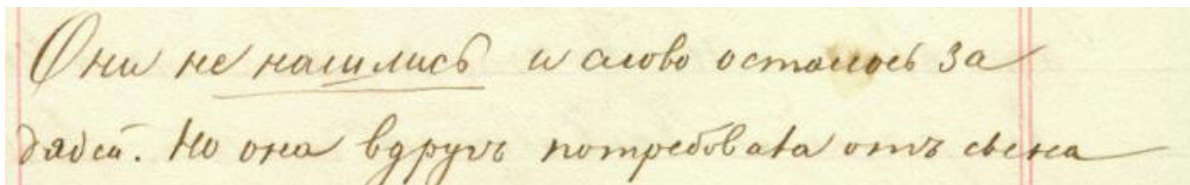 Они не нашлись и слово осталось за
дядей. Но она вдругъ потребовала отъ